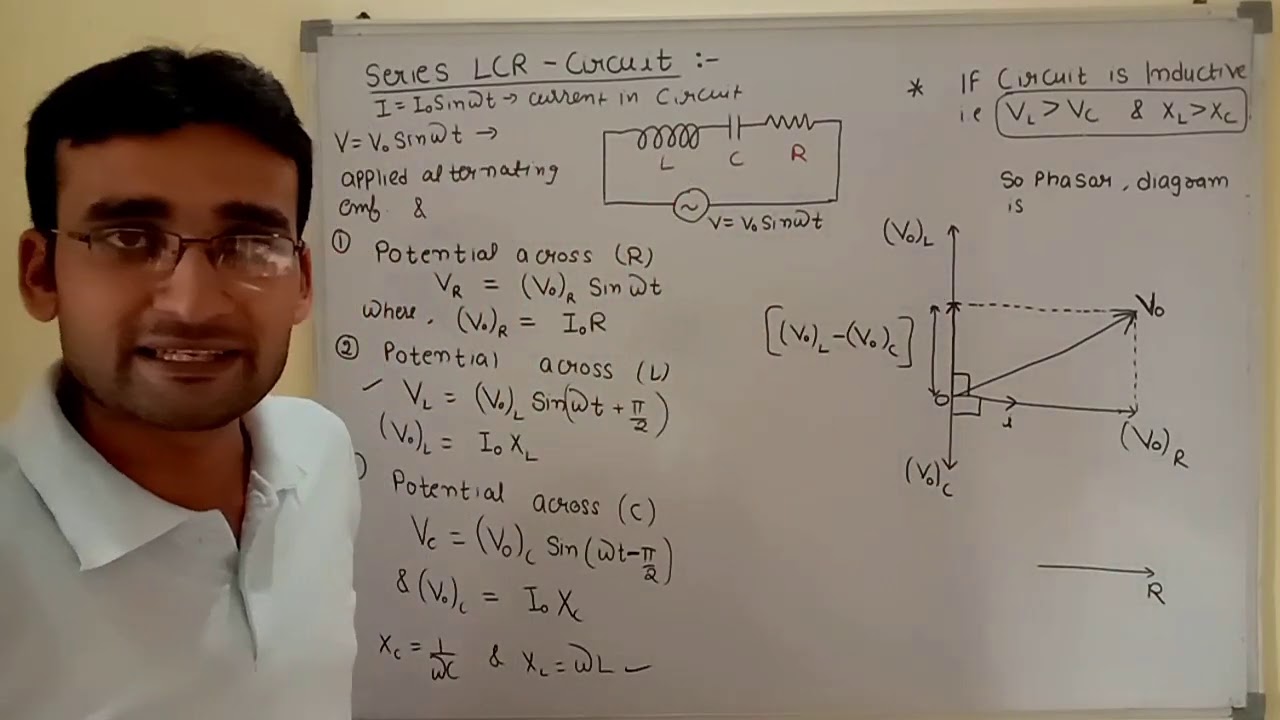 Series LCR - Circuit :-
I = I₀ Sinωt → current in Circuit
V = V₀ Sinωt →
applied alternating
emf &
L C R
V = V₀ Sinωt
① Potential across (R)
V_R = (V₀)_R Sin ωt
where, (V₀)_R = I₀R
② Potential across (L)
✓ V_L = (V₀)_L Sin(ωt + π/2)
(V₀)_L = I₀ X_L
) Potential across (C)
V_C = (V₀)_C Sin(ωt - π/2)
& (V₀)_C = I₀ X_C
X_C = 1/ωC & X_L = ωL ✓
* IF Circuit is Inductive
i.e V_L > V_C & X_L > X_C
So Phasar, diagram
is
(V₀)_L
V₀
[(V₀)_L - (V₀)_C]
O
i
(V₀)_R
(V₀)_C
R